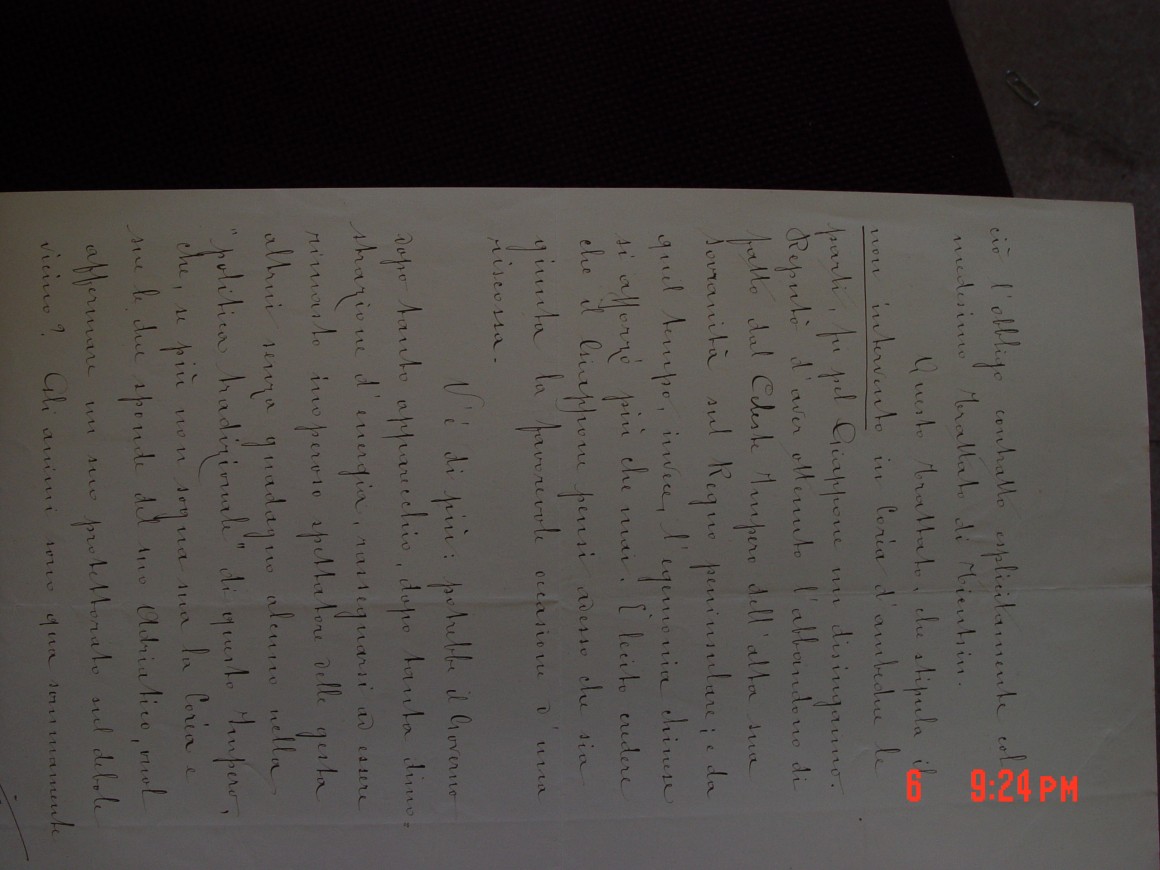 ciò l'obbligo contratto esplicitamente col
medesimo trattato di Tientsin.
Questo trattato, che stipula il
non intervento in Corea d'ambedue le
parti, fu pel Giappone un disinganno.
Reputò d'aver ottenuto l'abbandono di
fatto dal Celeste Impero dell'alta sua
sovranità sul Regno peninsulare; e da
quel tempo, invece, l'egemonia chinese
si afforzò più che mai. È lecito credere
che il Giappone pensi adesso che sia
giunta la favorevole occasione d'una
riscossa.
V'è di più: potrebbe il Governo
dopo tanto apparecchio, dopo tanta dimo-
strazione d'energia, rassegnarsi ad essere
rimasto inoperoso spettatore delle gesta
altrui senza guadagno alcuno nella
"politica tradizionale" di questo Impero,
che, se più non sogna sua la Corea e
sue le due sponde del suo Adriatico, vuol
affermare un suo protettorato sul debole
vicino? Gli animi sono qua sommamente
6 9:24 PM